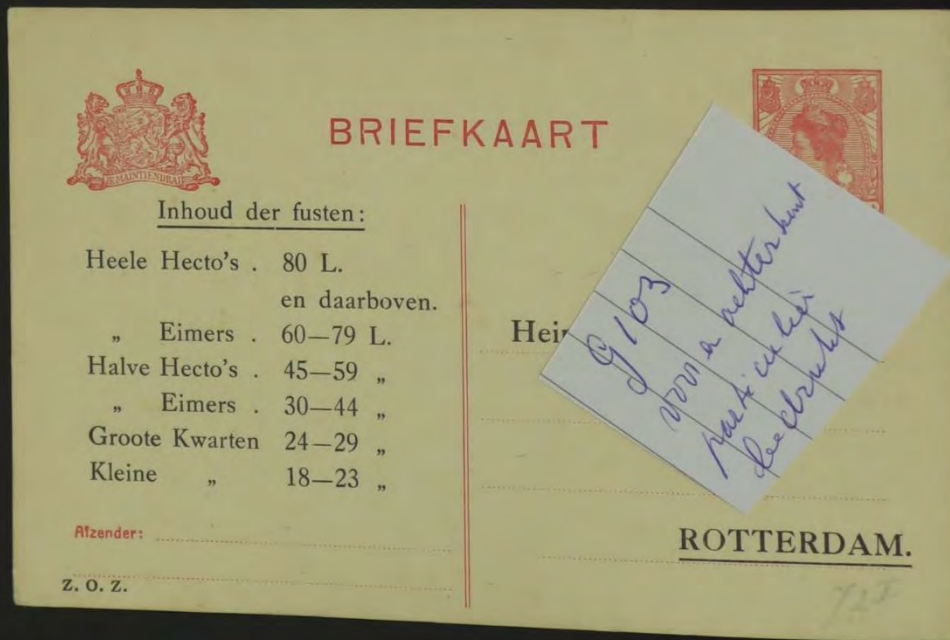 BRIEFKAART
JE MAINTIENDRAI
Inhoud der fusten:
Heele Hecto's . 80 L.
en daarboven.
„ Eimers . 60—79 L.
Halve Hecto's . 45—59 „
„ Eimers . 30—44 „
Groote Kwarten 24—29 „
Kleine „ 18—23 „
Afzender:
Z. O. Z.
Hei
G 103
voor a achterkant
particulier
bedrukt
ROTTERDAM.